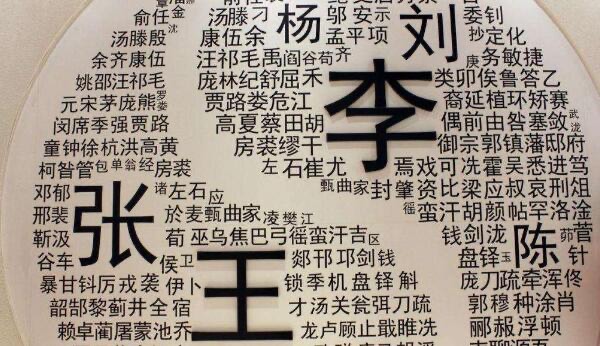 俞任金
汤滕刁
杨
邬安示
委钊
汤滕殷
沈
康伍余
孟平项
刘
抄定化
余齐康伍
汪祁毛禹阎谷苟齐
庚务敏捷
姚邵汪祁毛
庞林纪舒屈禾
李
类卯俟鲁答乙
元宋茅庞熊罗娄
贾路娄危江
裔延植环矫赛
闵席季强贾路
高夏蔡田胡
偶前由昝塞敛武泷
童钟徐杭洪高黄
房裘缪干
御宗郭镇藩邸府
柯昝管包单翁经房裘
左石崔尤
焉戏可冼霍吴悉进笃
邓郁
张
诸左石应
甄曲家封肇资比梁应叔哀刑俎
邢裴
於麦甄曲家凌樊江
徭蛮汗胡颜帖罕洛淦
靳汲
荀巫乌焦巴弓徭蛮汗吉区
钱剑泷
陈
茆菅
谷车
侯卫
王
郯邗邛剑钱
盘铎玉
针
暴甘钭厉戎袭
伊卜
锁季机盘铎斛
庞刀疏牵浑佟
韶郜黎蓟井全宿
才汤关瓮弭刀疏
郭穆种涂肖
赖卓蔺屠蒙池乔
龙卢顾止戢睢冼
郦赧浮顿